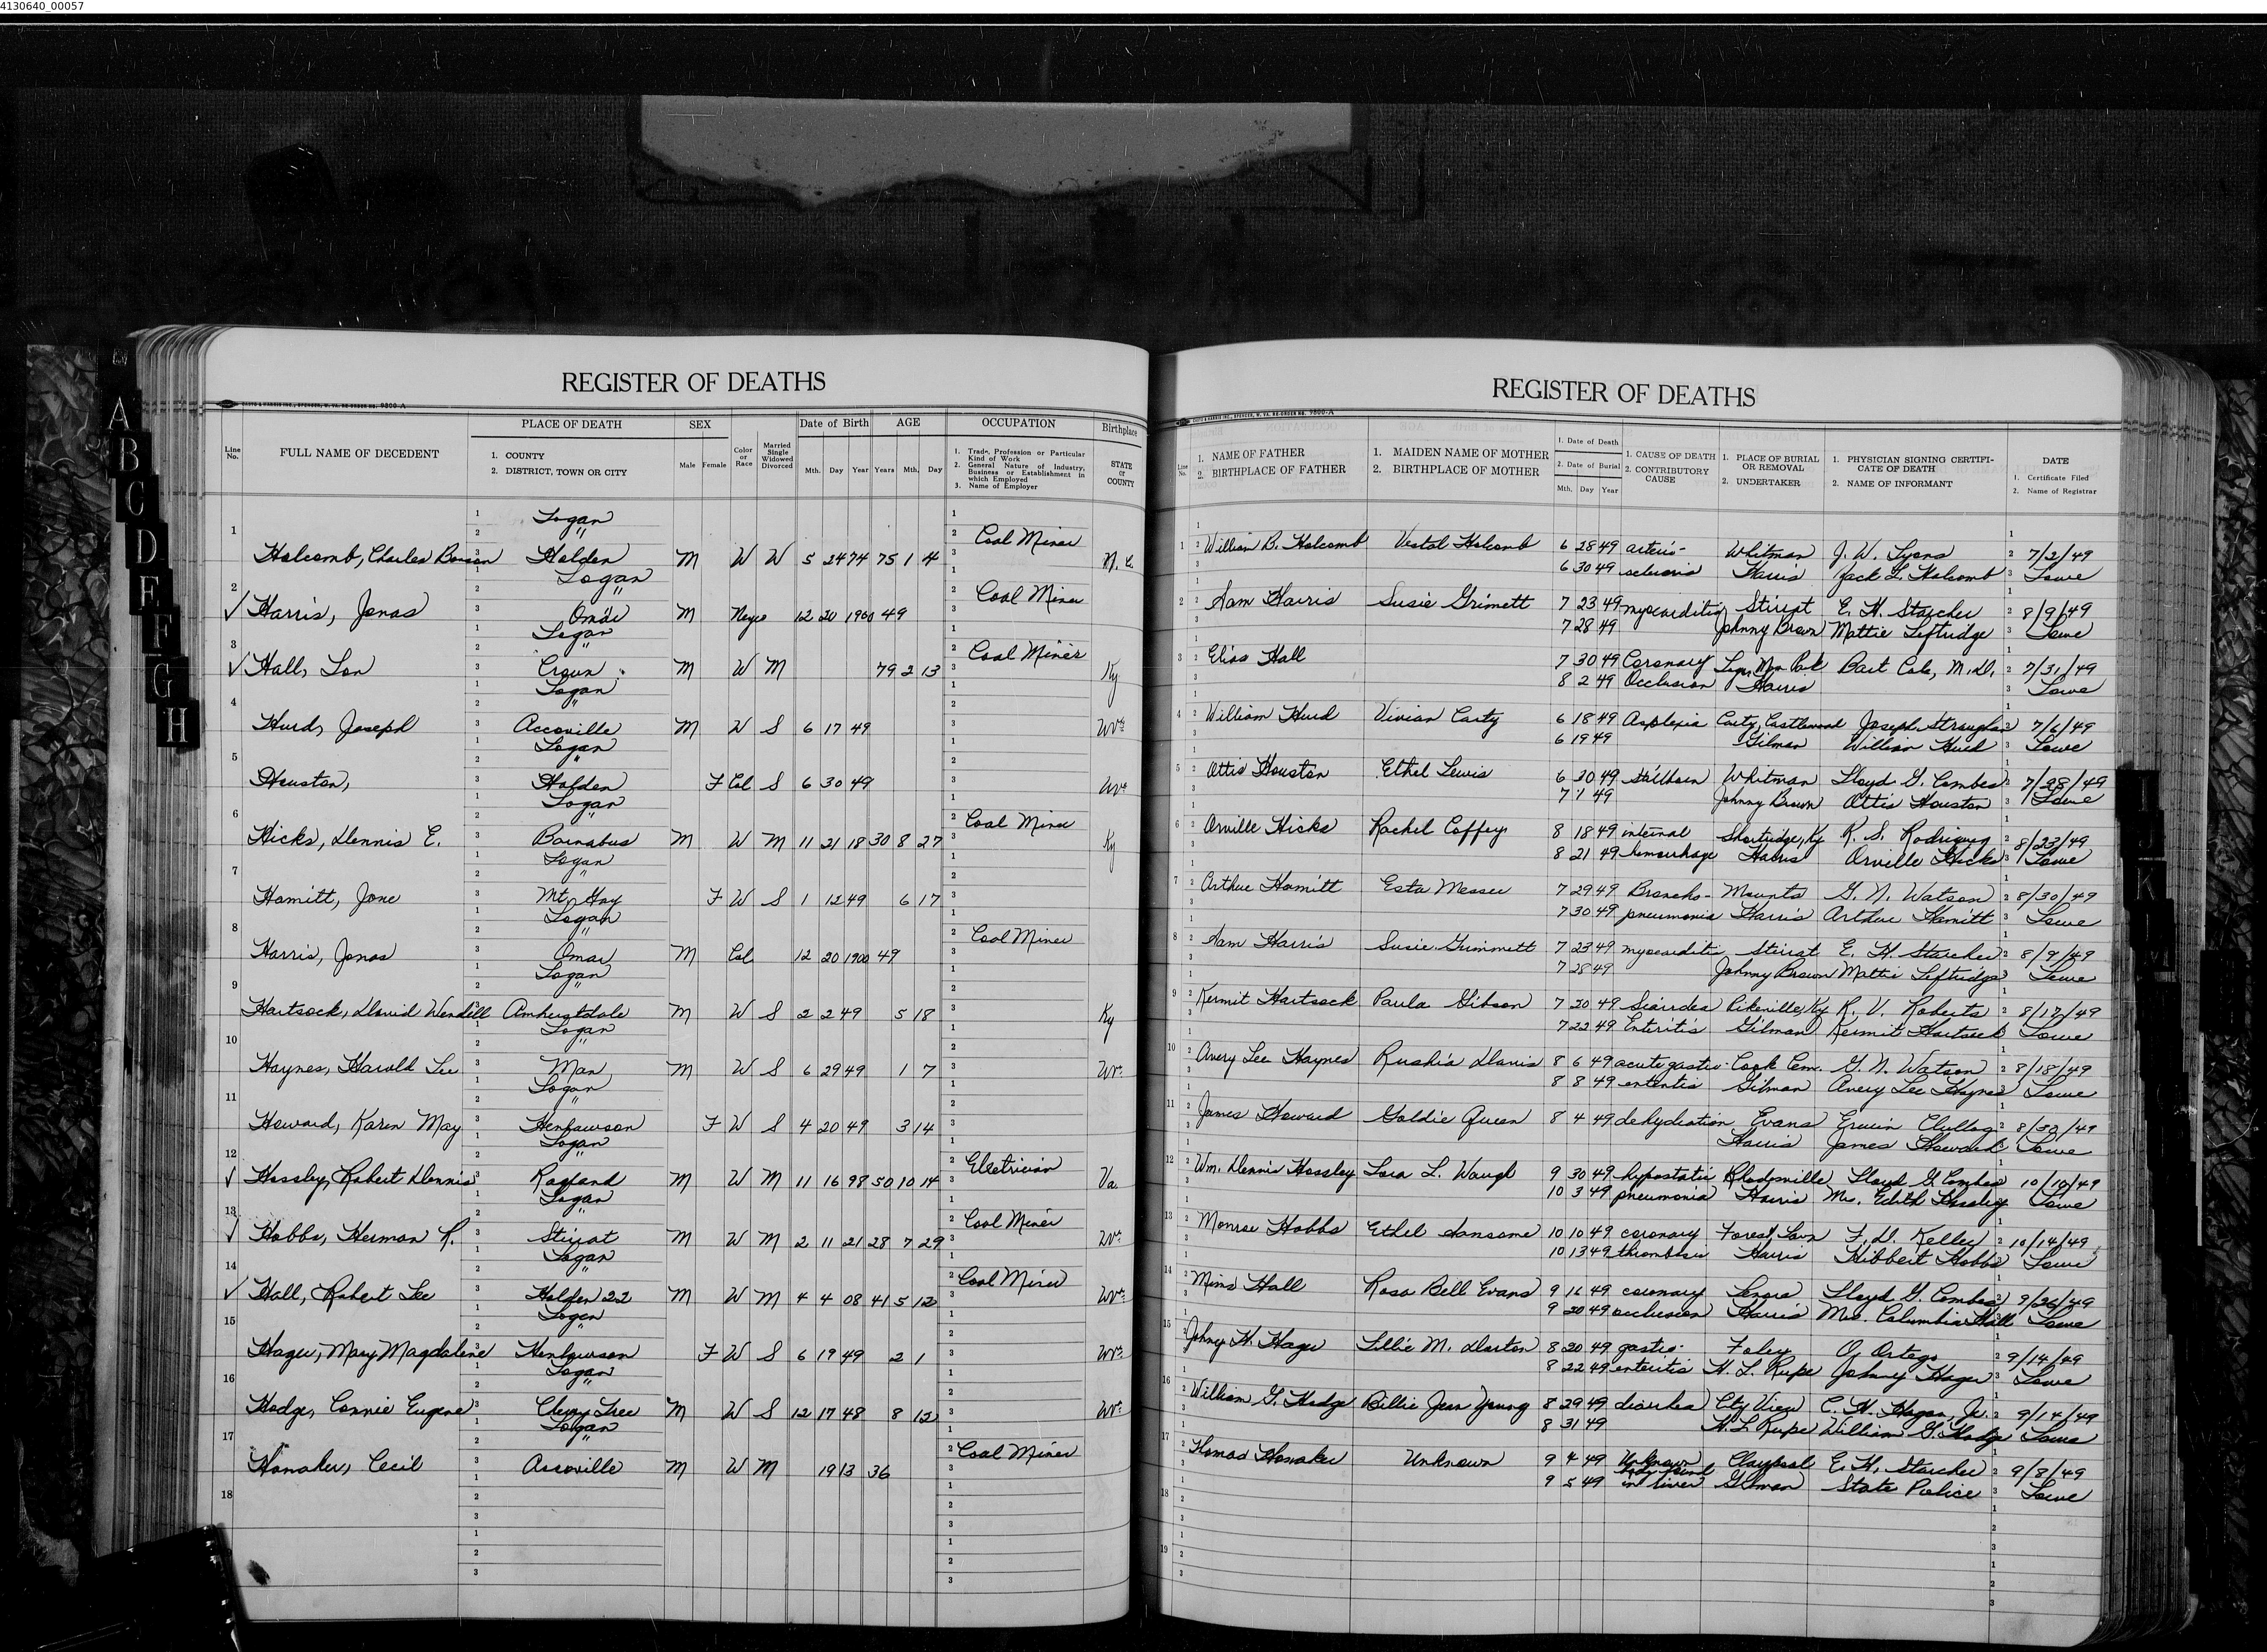 4130640_00057
A
B
C
D
E
F
G
H
REGISTER OF DEATHS
Line No.
FULL NAME OF DECEDENT
PLACE OF DEATH
1. COUNTY
2. DISTRICT, TOWN OR CITY
SEX
Male Female
Color or Race
Married Single Widowed Divorced
Date of Birth
Mth. Day Year
AGE
Years Mth. Day
OCCUPATION
1. Trade, Profession or Particular Kind of Work
2. General Nature of Industry, Business or Establishment in which Employed
3. Name of Employer
Birthplace
STATE or COUNTY
1 Logan "
Holcomb, Charles Holden M W W 5 24 74 75 1 4 Coal Miner N. C.
2 Logan "
✓ Harris, Jonas Omar M Negro 12 20 1900 49 Coal Miner
3 Logan "
✓ Hall, Lon Crown M W M 79 2 13 Coal Miner Ky
4 Logan "
Hurd, Joseph Accoville M W S 6 17 49 WVa
5 Logan "
Houston, Holden F Col S 6 30 49 WVa
6 Logan "
Hicks, Dennis E. Barnabus M W M 11 21 18 30 8 27 Coal Miner Ky
7 Logan "
Hamitt, Jane Mt. Gay F W S 1 12 49 6 17
8 Logan "
Harris, Jonas Omar M Col 12 20 1900 49 Coal Miner
9 Logan "
Hartsock, David Wendell Amherstdale M W S 2 2 49 5 18 Ky
10 Logan "
Haynes, Harold Lee Man M W S 6 29 49 1 7 WVa
11 Logan "
Howard, Karen May Henlawson F W S 4 20 49 3 14
12 Logan "
✓ Hossley, Robert Dennis Ragland M W M 11 16 98 50 10 14 Electrician Va.
13 Logan "
✓ Hobbs, Herman R. Stirrat M W M 2 11 21 28 7 29 Coal Miner WVa
14 Logan "
✓ Hall, Robert Lee Holden 22 M W M 4 4 08 41 5 12 Coal Miner WVa
15 Logan "
Hager, Mary Magdalene Henlawson F W S 6 19 49 2 1 WVa
16 Logan "
Hodge, Connie Eugene Cherry Tree M W S 12 17 48 8 12 WVa
17 Logan "
Honaker, Cecil Accoville M W M 1913 36 Coal Miner
18
REGISTER OF DEATHS
Line No.
1. NAME OF FATHER
2. BIRTHPLACE OF FATHER
1. MAIDEN NAME OF MOTHER
2. BIRTHPLACE OF MOTHER
1. Date of Death
2. Date of Burial
Mth. Day Year
1. CAUSE OF DEATH
2. CONTRIBUTORY CAUSE
1. PLACE OF BURIAL OR REMOVAL
2. UNDERTAKER
1. PHYSICIAN SIGNING CERTIFICATE OF DEATH
2. NAME OF INFORMANT
DATE
1. Certificate Filed
2. Name of Registrar
1 William B. Holcomb Vestal Holcomb 6 28 49 arterio- Whitman J. W. Lyons 7/2/49
6 30 49 sclerosis Harris Jack L. Holcomb Lowe
2 Sam Harris Susie Grimett 7 23 49 myocarditis Stirrat E. H. Starcher 8/9/49
7 28 49 Johnny Brown Mattie Leftridge Lowe
3 Elias Hall 7 30 49 Coronary Mem Park M.D. 7/31/49
8 2 49 Occlusion Harris Lowe
4 William Hurd Vivian Carty 6 18 49 Asplexia Carty, Castlewood Joseph Straughan 7/6/49
6 19 49 Gilman William Hurd Lowe
5 Ottis Houston Ethel Lewis 6 30 49 stillborn Whitman Lloyd G. Combes 7/28/49
7 1 49 Johnny Brown Ottis Houston Lowe
6 Orville Hicks Rachel Coffey 8 18 49 internal Shortridge, Ky R. S. Rodriguez 8/23/49
8 21 49 hemorrhage Harris Orville Hicks Lowe
7 Arthur Hamitt Esta Messer 7 29 49 Broncho- Mounts G. N. Watson 8/30/49
7 30 49 pneumonia Harris Arthur Hamitt Lowe
8 Sam Harris Susie Grimmett 7 23 49 myocarditis Stirrat E. H. Starcher 8/9/49
7 28 49 Johnny Brown Mattie Leftridge Lowe
9 Kermit Hartsock Paula Gibson 7 20 49 Pikeville, Ky R. V. Roberts 8/17/49
7 22 49 Enteritis Gilman Kermit Hartsock Lowe
10 Avery Lee Haynes Rushia Davis 8 6 49 acute gastro- Cook Cem. G. N. Watson 8/18/49
8 8 49 enteritis Gilman Avery Lee Haynes Lowe
11 James Howard Goldie Queen 8 4 49 dehydration Evans Erwin 8/30/49
Harris James Howard Lowe
12 Wm. Dennis Hossley Lora L. Waugh 9 30 49 hypostatic Rhodesville Lloyd G. Combes 10/10/49
10 3 49 pneumonia Harris Mrs. Edith Hossley Lowe
13 Monroe Hobbs Ethel Sansome 10 10 49 coronary Forest Lawn F. D. Kelley 10/14/49
10 13 49 thrombosis Harris Hibbert Hobbs Lowe
14 Mims Hall Rosa Bell Evans 9 16 49 coronary Lenore Lloyd G. Combes 9/26/49
9 20 49 occlusion Harris Mrs. Columbia Hall Lowe
15 Johney H. Hager Lillie M. Dorton 8 20 49 gastro- Foley O. Ortego 9/14/49
8 22 49 enteritis H. L. Rupe Johney Hager Lowe
16 William G. Hodge Billie Jean Young 8 29 49 diarrhea City View C. H. Hagan, Jr. 9/14/49
8 31 49 H. L. Rupe William G. Hodge Lowe
17 Honaker Unknown 9 4 49 Unknown Claypool E. H. Starcher 9/8/49
9 5 49 body found in river Gilman State Police Lowe
18
19
J
K
L
M